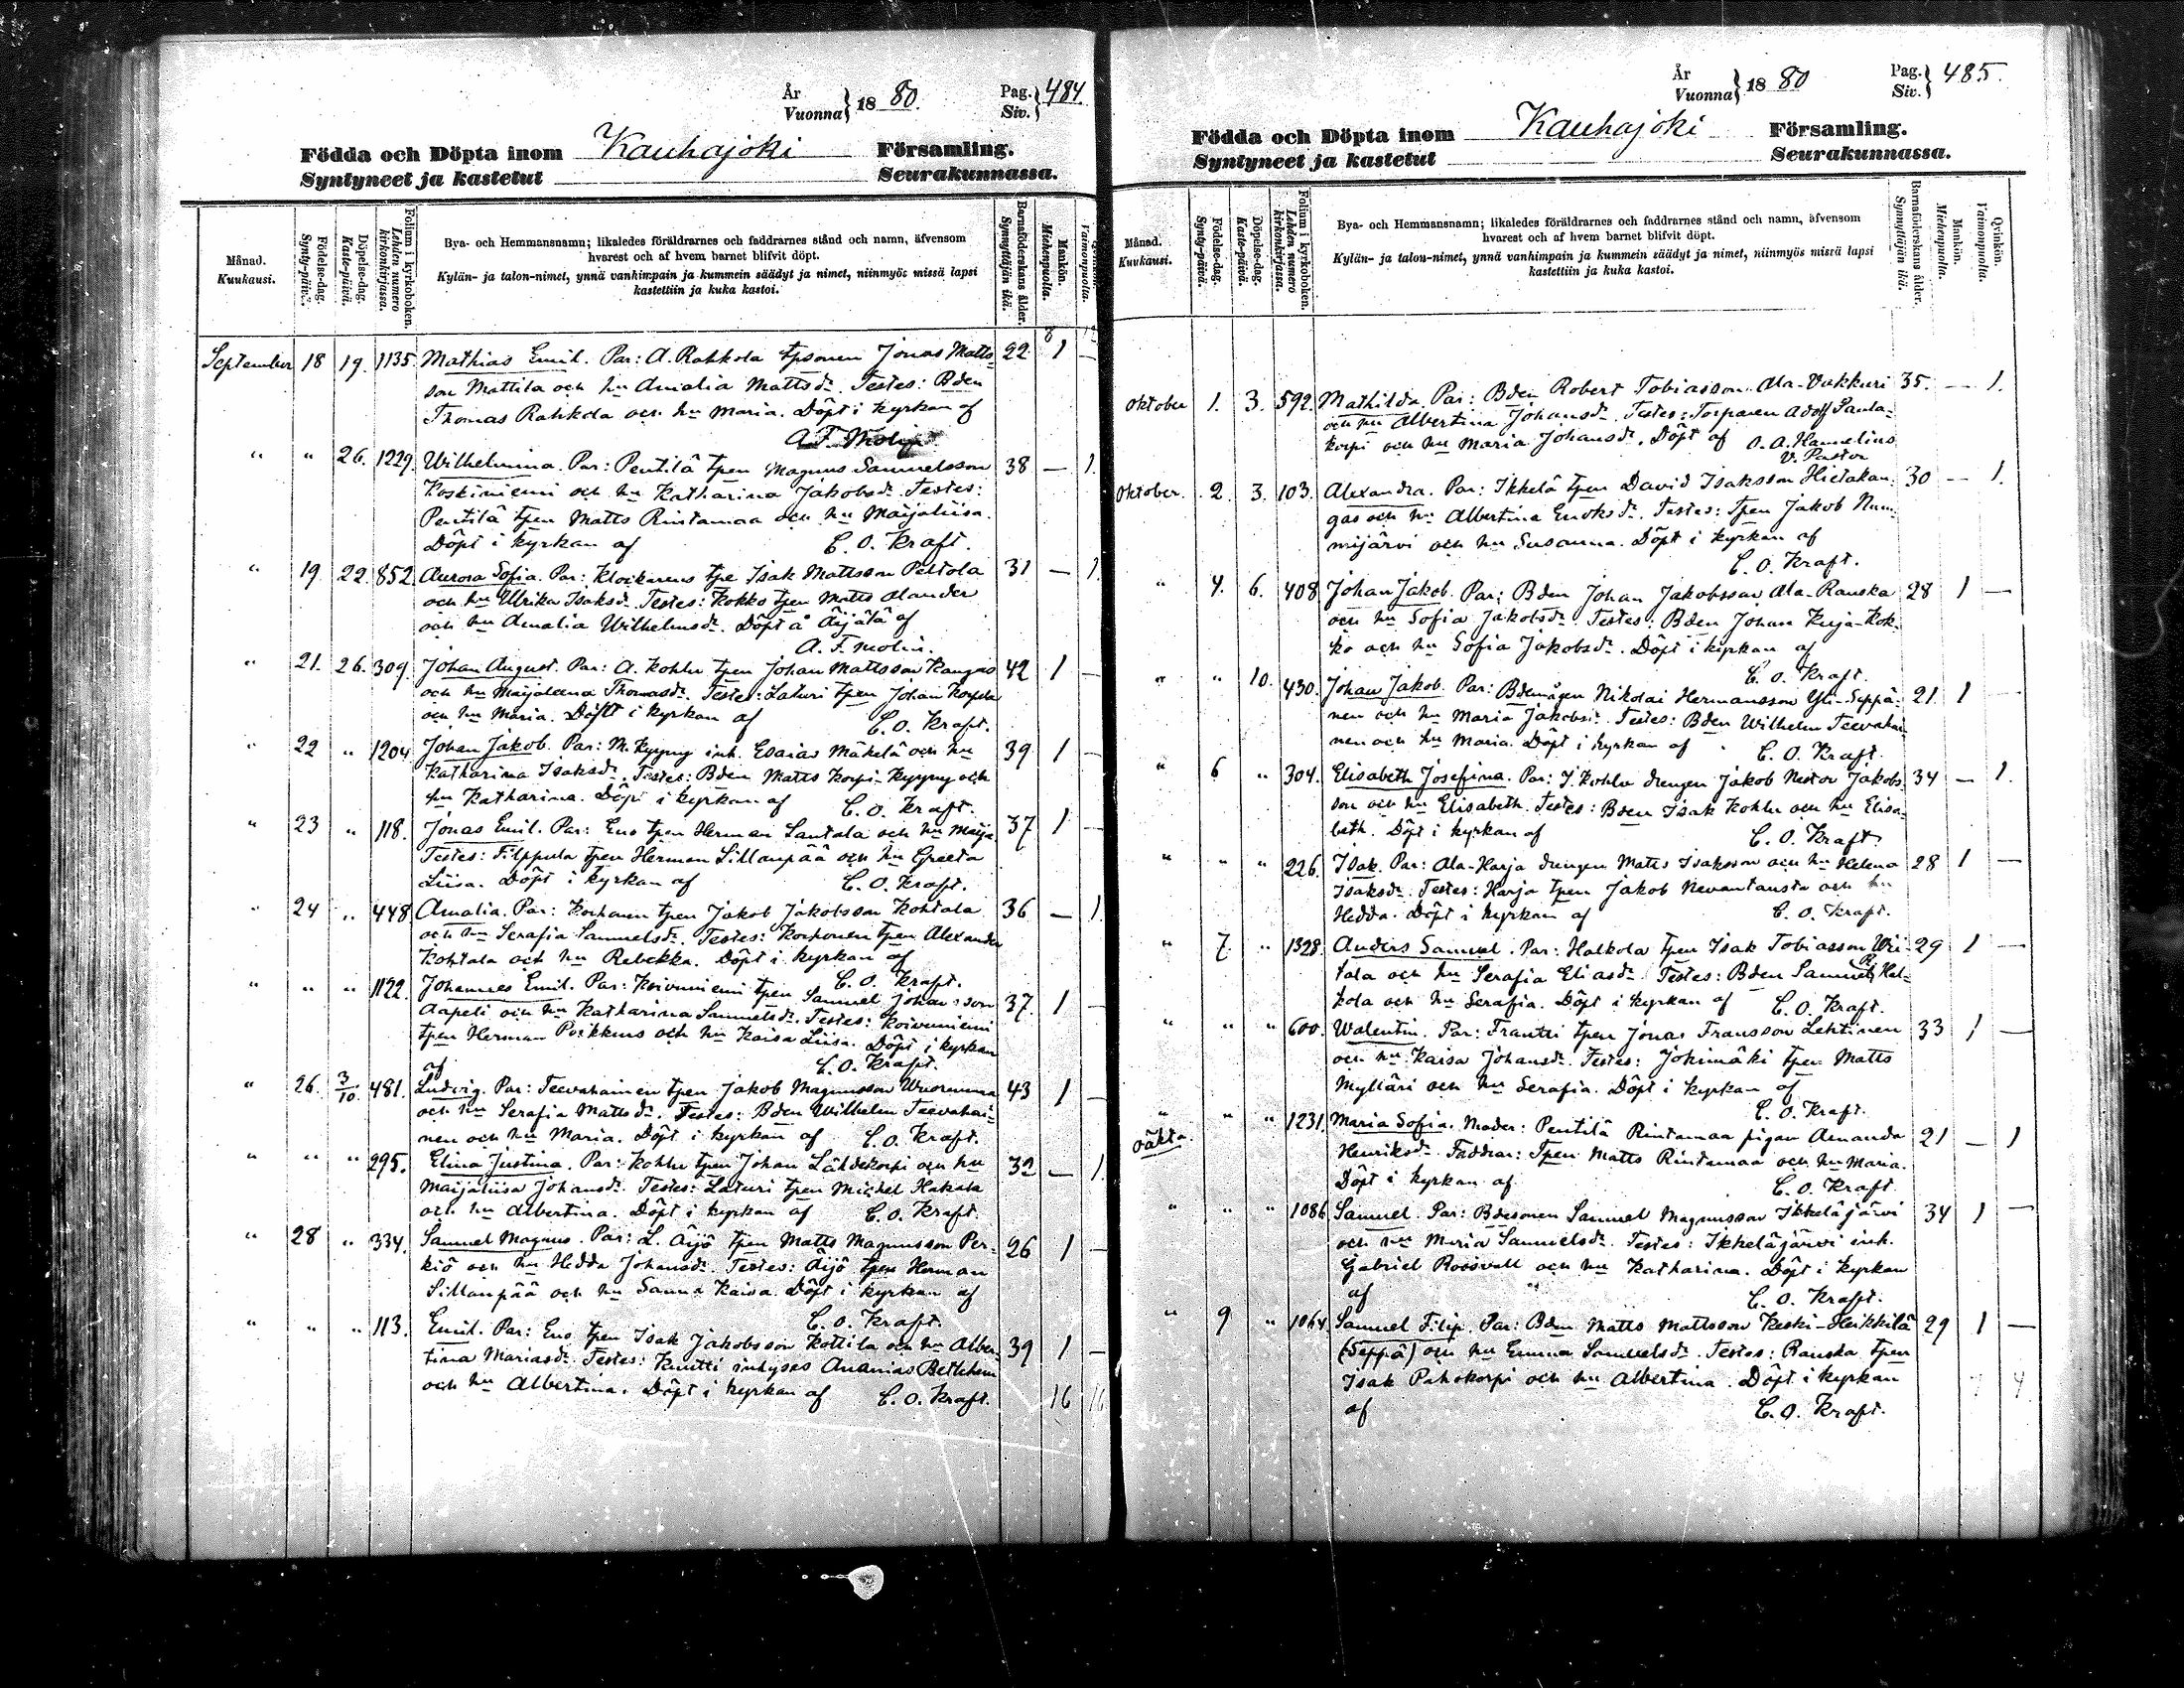 År
Vuonna} 18 80.
Pag.
Siv.} 484.
Födda och Döpta inom Kauhajoki Församling.
Syntyneet ja kastetut Seurakunnassa.
Månad.
Kuukausi.
Födelse-dag.
Synty-päivä.
Döpelse-dag.
Kaste-päivä.
Folium i kyrkoboken.
Lehden numero
kirkonkirjassa.
Bya- och Hemmansnamn; likaledes föräldrarnes och faddrarnes stånd och namn, äfvensom
hvarest och af hvem barnet blifvit döpt.
Kylän- ja talon-nimet, ynnä vanhimpain ja kummein säädyt ja nimet, niinmyös missä lapsi
kastettiin ja kuka kastoi.
Barnaföderskans ålder.
Synnyttäjän ikä.
Mankön.
Miehenpuolta.
Vaimonpuolta.
September 18 19. 1135. Mathias Emil. Par: A. Rahkola tpsonen Jonas Matts- 22 1 —
son Mattila och hu Amalia Mattsdr. Testes: Bden
Thomas Rahkola och hu Maria. Döpt i kyrkan af
A. F. Molin
" " 26. 1229. Wilhelmina. Par: Pentilä tpen Magnus Samuelsson 38 — 1.
Koskiniemi och hu Katharina Jakobsdr. Testes:
Pentilä tpen Matts Rintamaa och hu Maijaliisa.
Döpt i kyrkan af C. O. Kraft.
" 19 22. 852. Aurora Sofia. Par: Klockarens tpe Isak Mattsson Peltola 31 — 1.
och hu Ulrika Isaksdr. Testes: Kokko tpen Matts Alander
och hu Amalia Wilhelmsdr. Döpt å Äijälä af
A. F. Molin.
" 21. 26. 309. Johan August. Par: A. Kohlu tpen Johan Mattsson Kangas 42 1 —
och hu Maijaleena Thomasdr. Testes: Laturi tpen Johan Korpela
och hu Maria. Döpt i kyrkan af C. O. Kraft.
" 22 " 1204. Johan Jakob. Par: M. Kyyny inh. Esaias Mäkelä och hu 39 1 —
Katharina Isaksdr. Testes: Bden Matts Korpi-Kyyny och
hu Katharina. Döpt i kyrkan af C. O. Kraft.
" 23 " 118. Jonas Emil. Par: Eno tpen Herman Santala och hu Maija. 37 1 —
Testes: Filppula tpen Herman Sillanpää och hu Greeta
Liisa. Döpt i kyrkan af C. O. Kraft.
" 24 " 448. Amalia. Par: Korhonen tpen Jakob Jakobsson Kohtala 36 — 1.
och hu Serafia Samuelsdr. Testes: Korhonen tpen Alexander
Kohtala och hu Rebekka. Döpt i kyrkan af
C. O. Kraft.
" " " 1122. Johannes Emil. Par: Koivuniemi tpen Samuel Johansson 37. 1 —
Aapeli och hu Katharina Samuelsdr. Testes: Koivuniemi
tpen Herman Poikkeus och hu Kaisa Liisa. Döpt i kyrkan
af C. O. Kraft.
" 26. 3/10. 481. Ludvig. Par: Teevahainen tpen Jakob Magnusson Wuorenmaa 43 1 —
och hu Serafia Mattsdr. Testes: Bden Wilhelm Teevahai-
nen och hu Maria. Döpt i kyrkan af C. O. Kraft.
" " " 295. Elina Justina. Par: Kohlu tpen Johan Lähdekorpi och hu 32 — 1.
Maijaliisa Johansdr. Testes: Laturi tpen Michel Hakala
och hu Albertina. Döpt i kyrkan af C. O. Kraft.
" 28 " 334. Samuel Magnus. Par: L. Äijö tpen Matts Magnusson Per- 26 1 —
kiö och hu Hedda Johansdr. Testes: Äijö tpen Herman
Sillanpää och hu Sanna Kaisa. Döpt i kyrkan af
C. O. Kraft.
" " " 113. Emil. Par: Eno tpen Isak Jakobsson Kottila och hu Alber- 39 1 —
tina Mariasdr. Testes: Knutti inhyses Ananias Betlehem
och hu Albertina. Döpt i kyrkan af C. O. Kraft.
16 16
År
Vuonna} 18 80
Pag.
Siv.} 485.
Födda och Döpta inom Kauhajoki Församling.
Syntyneet ja kastetut Seurakunnassa.
Månad.
Kuukausi.
Födelse-dag.
Synty-päivä.
Döpelse-dag.
Kaste-päivä.
Folium i kyrkoboken.
Lehden numero
kirkonkirjassa.
Bya- och Hemmansnamn; likaledes föräldrarnes och faddrarnes stånd och namn, äfvensom
hvarest och af hvem barnet blifvit döpt.
Kylän- ja talon-nimet, ynnä vanhimpain ja kummein säädyt ja nimet, niinmyös missä lapsi
kastettiin ja kuka kastoi.
Barnaföderskans ålder.
Synnyttäjän ikä.
Mankön.
Miehenpuolta.
Qvinkön.
Vaimonpuolta.
Oktober 1. 3. 592. Mathilda. Par: Bden Robert Tobiasson Ala-Vakkuri 35. — 1.
och hu Albertina Johansdr. Testes: Torparen Adolf Santa-
korpi och hu Maria Johansdr. Döpt af O. A. Hannelius
V. Pastor
Oktober. 2. 3. 103. Alexandra. Par: Ikkelä tpen David Isaksson Hietakan- 30 — 1.
gas och hu Albertina Enoksdr. Testes: Tpen Jakob Num-
mijärvi och hu Susanna. Döpt i kyrkan af
C. O. Kraft.
" 4. 6. 408 Johan Jakob. Par: Bden Johan Jakobsson Ala-Ranska 28 1 —
och hu Sofia Jakobsdr. Testes: Bden Johan Kuja-Kok-
ko och hu Sofia Jakobsdr. Döpt i kyrkan af
C. O. Kraft.
" " 10. 430. Johan Jakob. Par: Bdemågen Nikolai Hermansson Yli-Seppä- 21. 1
nen och hu Maria Jakobsdr. Testes: Bden Wilhelm Teevahai-
nen och hu Maria. Döpt i kyrkan af C. O. Kraft.
" 6 " 304. Elisabeth Josefina. Par: I. Kohlu drengen Jakob Nestor Jakobs- 34 — 1.
son och hu Elisabeth. Testes: Bden Isak Kohlu och hu Elisa-
beth. Döpt i kyrkan af C. O. Kraft.
" " " 226. Isak. Par: Ala-Harja drengen Matts Isaksson och hu Helena 28 1 —
Isaksdr. Testes: Harja tpen Jakob Nevantausta och hu
Hedda. Döpt i kyrkan af C. O. Kraft.
" 7. " 1328. Anders Samuel. Par: Halkola tpen Isak Tobiasson Wii- 29 1 —
tala och hu Serafia Eliasdr. Testes: Bden Samuel Hal-
kola och hu Serafia. Döpt i kyrkan af C. O. Kraft.
" " " 600. Walentin. Par: Frantti tpen Jonas Fransson Lehtinen 33 1 —
och hu Kaisa Johansdr. Testes: Jokimäki tpen Matts
Mylläri och hu Serafia. Döpt i kyrkan af
C. O. Kraft.
" " " 1231. Maria Sofia. Moder: Pentilä Rintamaa pigan Amanda 21 — 1
oäkta.
Henriksdr. Faddrar: Tpen Matts Rintamaa och hu Maria.
Döpt i kyrkan af C. O. Kraft
" " " 1086 Samuel. Par: Bdesonen Samuel Magnusson Ikkeläjärvi 34 1 —
och hu Maria Samuelsdr. Testes: Ikkeläjärvi inh.
Gabriel Roosvall och hu Katharina. Döpt i kyrkan
af C. O. Kraft.
" 9 " 1064. Samuel Filip. Par: Bden Matts Mattsson Keski-Heikkilä 29 1 —
(Seppä) och hu Emma Samuelsdr. Testes: Ranska tpen
Isak Pahokorpi och hu Albertina. Döpt i kyrkan
af C. O. Kraft.
7 4